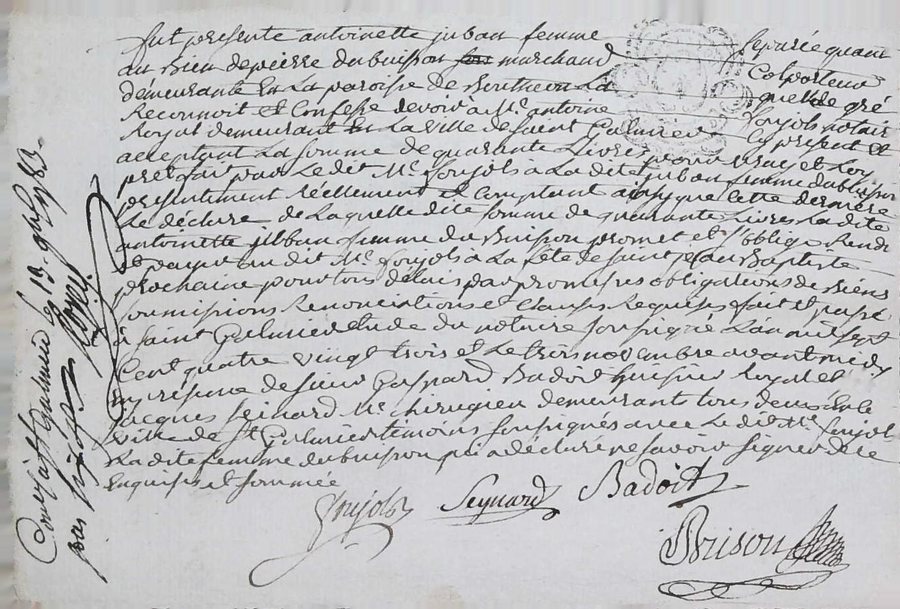 fut presente antoinette juban femme separée quant
au Bien de pierre dubuisson marchand Colporteur
demeurante En La paroisse de La quelle de gré
Reconnoit et Confesse devoir à Me. antoine Soujols notaire
Royal demeurant En La ville de saint Galmier Cy present et
acceptant La somme de quarante Livres pour vray et Loy
pret fait par Le dit Me. Soujols à La dite juban femme dubuisson
presentement réellement et Comptant ainsy que Cette derniere
Le déclare de Laquelle dite somme de quarante Livres La dite
antoinette juban femme du Buisson promet et s'oblige Rendre
Et payer au dit Me. Soujols à La fête de saint jean Baptiste
prochaine pour tous délais par promesses obligations de Biens
soumissions Renonciations et Clauses Requises fait et passé
à saint Galmier Etude du notaire soussigné L'an mil sept
Cent quatre vingt trois et Le trois novembre avant midi
En presence de sieur Gaspard Badoit huissier Royal et
jacques Seinard Me. chirugien demeurant tous deux En La
ville de St. Galmier témoins soussignés avec Le dit Me. Soujols
La dite femme dubuisson qui a déclaré ne savoir signer de ce
Enquise et sommée
Soujols Seynard Badoit
Brison
Con à St Galmier le 13. 9bre 83.